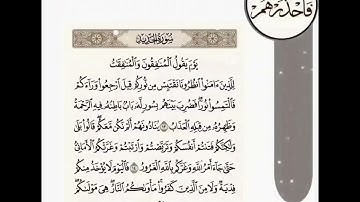 فَاحْذَرْهُمْ
سُورَةُ الْحَدِيدِ
يَوْمَ يَقُولُ الْمُنَافِقُونَ وَالْمُنَافِقَاتُ
لِلَّذِينَ آمَنُوا انظُرُونَا نَقْتَبِسْ مِن نُّورِكُمْ قِيلَ ارْجِعُوا وَرَاءَكُمْ
فَالْتَمِسُوا نُورًا فَضُرِبَ بَيْنَهُم بِسُورٍ لَّهُ بَابٌ بَاطِنُهُ فِيهِ الرَّحْمَةُ
وَظَاهِرُهُ مِن قِبَلِهِ الْعَذَابُ ١٣ يُنَادُونَهُمْ أَلَمْ نَكُن مَّعَكُمْ قَالُوا بَلَىٰ
وَلَٰكِنَّكُمْ فَتَنتُمْ أَنفُسَكُمْ وَتَرَبَّصْتُمْ وَارْتَبْتُمْ وَغَرَّتْكُمُ الْأَمَانِيُّ
حَتَّىٰ جَاءَ أَمْرُ اللَّهِ وَغَرَّكُم بِاللَّهِ الْغَرُورُ ١٤ فَالْيَوْمَ لَا يُؤْخَذُ مِنكُمْ
فِدْيَةٌ وَلَا مِنَ الَّذِينَ كَفَرُوا مَأْوَاكُمُ النَّارُ هِيَ مَوْلَاكُمْ